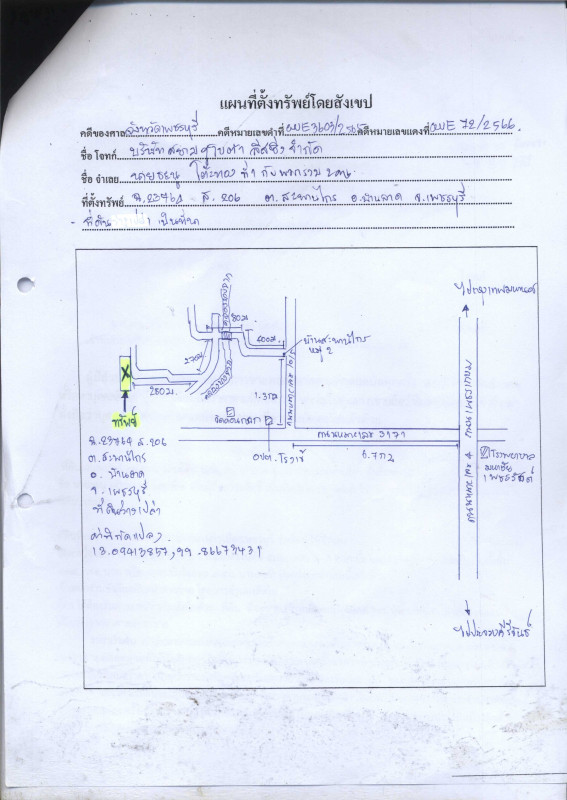 แผนที่ตั้งทรัพย์โดยสังเขป
คดีของศาล จังหวัดเพชรบุรี คดีหมายเลขดำที่ ผบE3603/2565 คดีหมายเลขแดงที่ ผบE 72/2566.
ชื่อ โจทก์ บริษัท สยาม ลิสซิ่ง จำกัด
ชื่อ จำเลย นาย โต๊ะทอง ที่ 1 กับพวกรวม 2 คน
ที่ตั้งทรัพย์ ฉ.23764 ส. 206 ต.สะพานไกร อ.บ้านลาด จ.เพชรบุรี
ที่ดิน เป็นที่นา
ไปกรุงเทพมหานคร
คลองชลประทาน
80ม.
400ม.
บ้านสะพานไกร
หมู่ 2
270ม.
280ม.
1.3กม
X
ทรัพย์
ฉ.23764 ส.206
ต.สะพานไกร
อ. บ้านลาด
จ. เพชรบุรี
ที่ดินว่างเปล่า
ค่าพิกัดแปลง
13.09413857,99.86673431
อบต.โรงเข้
ถนนหมายเลข 3171
6.7กม
ถนนหมายเลข 4 ถนนเพชรเกษม
โรงพยาบาล
มหาชัย
เพชรรัตน์
ไปประจวบคีรีขันธ์